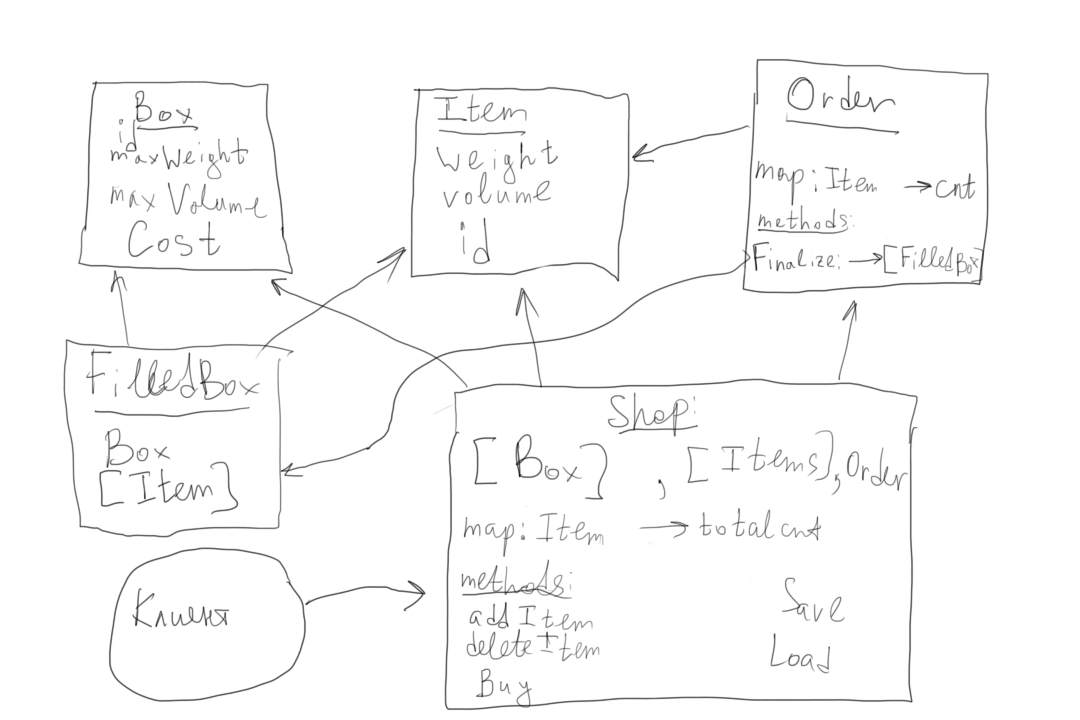 Box
id
maxWeight
max Volume
Cost
Item
weight
volume
id
Order
map: Item → cnt
methods:
Finalize: → [FilledBox]
FilledBox
Box
[Item]
Shop:
[Box] , [Items], Order
map: Item → total cnt
methods:
add Item
delete Item
Buy
Save
Load
Клиент